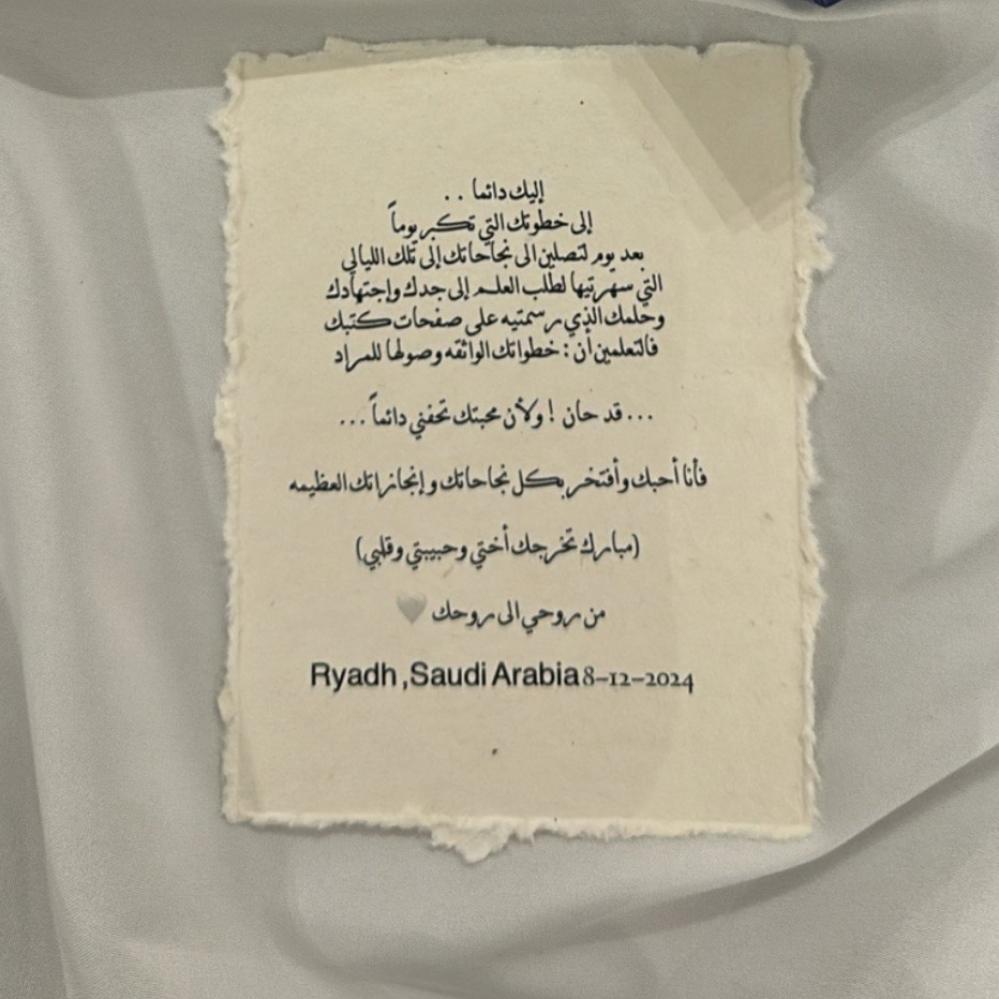 إليك دائما ..
إلى خطوتك التي تكبر يوماً
بعد يوم لتصلين الى نجاحاتك إلى تلك الليالي
التي سهرتيها لطلب العلم إلى جدك وإجتهادك
وحلمك الذي رسمتيه على صفحات كتبك
فالتعلمين أن : خطواتك الواثقه وصولها للمراد
... قد حان ! ولأن محبتك تحفني دائماً ...
فأنا أحبك وأفتخر بكل نجاحاتك و إنجازاتك العظيمه
(مبارك تخرجك أختي وحبيبتي وقلبي)
من روحي الى روحك 🤍
Ryadh ,Saudi Arabia 8-12-2024